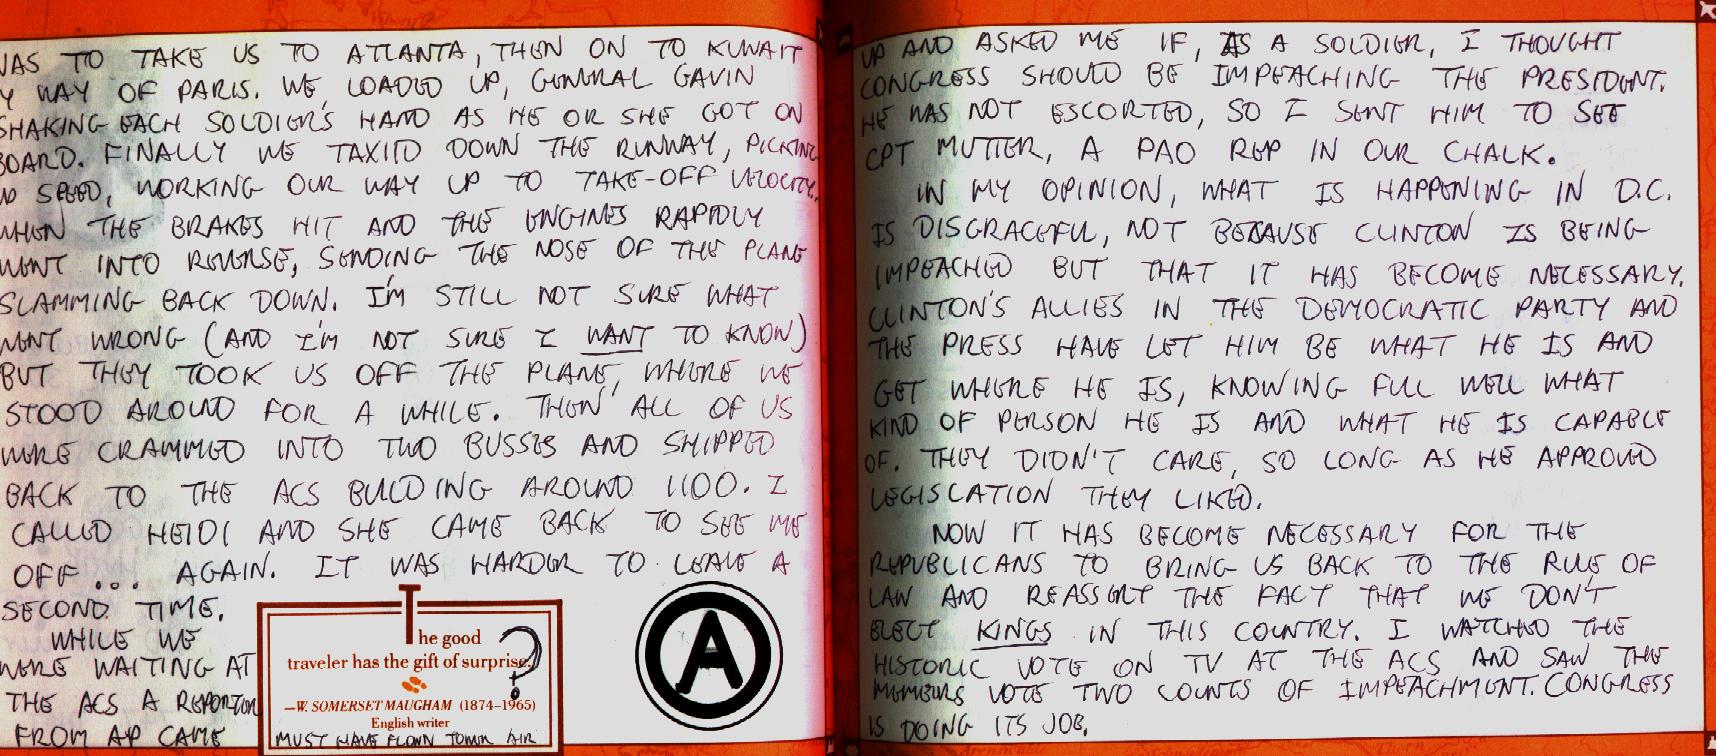 WAS TO TAKE US TO ATLANTA, THEN ON TO KUWAIT
BY WAY OF PARIS. WE LOADED UP, GENERAL GAVIN
SHAKING EACH SOLDIER'S HAND AS HE OR SHE GOT ON
BOARD. FINALLY WE TAXIID DOWN THE RUNWAY, PICKING
UP SPEED, WORKING OUR WAY UP TO TAKE-OFF VELOCITY..
WHEN THE BRAKES HIT AND THE ENGINES RAPIDLY
WENT INTO REVERSE, SENDING THE NOSE OF THE PLANE
SLAMMING BACK DOWN. I'M STILL NOT SURE WHAT
WENT WRONG (AND I'M NOT SURE I WANT TO KNOW)
BUT THEY TOOK US OFF THE PLANE, WHERE WE
STOOD AROUND FOR A WHILE. THEN ALL OF US
WERE CRAMMED INTO TWO BUSSES AND SHIPPED
BACK TO THE ACS BUILDING AROUND 1100. I
CALLED HEIDI AND SHE CAME BACK TO SEE ME
OFF... AGAIN. IT WAS HARDER TO LEAVE A
SECOND TIME.
WHILE WE
WERE WAITING AT
THE ACS A REPORTER
FROM AP CAME
The good
traveler has the gift of surprise.?
—W. SOMERSET MAUGHAM (1874–1965)
English writer
MUST HAVE FLOWN TOWER AIR
A
UP AND ASKED ME IF, AS A SOLDIER, I THOUGHT
CONGRESS SHOULD BE IMPEACHING THE PRESIDENT.
HE WAS NOT ESCORTED, SO I SENT HIM TO SEE
CPT MUTTER, A PAO REP IN OUR CHALK.
IN MY OPINION, WHAT IS HAPPENING IN D.C.
IS DISGRACEFUL, NOT BECAUSE CLINTON IS BEING
IMPEACHED BUT THAT IT HAS BECOME NECESSARY.
CLINTON'S ALLIES IN THE DEMOCRATIC PARTY AND
THE PRESS HAVE LET HIM BE WHAT HE IS AND
GET WHERE HE IS, KNOWING FULL WELL WHAT
KIND OF PERSON HE IS AND WHAT HE IS CAPABLE
OF. THEY DIDN'T CARE, SO LONG AS HE APPROVED
LEGISLATION THEY LIKED.
NOW IT HAS BECOME NECESSARY FOR THE
REPUBLICANS TO BRING US BACK TO THE RULE OF
LAW AND REASSERT THE FACT THAT WE DON'T
ELECT KINGS IN THIS COUNTRY. I WATCHED THE
HISTORIC VOTE ON TV AT THE ACS AND SAW THE
MEMBERS VOTE TWO COUNTS OF IMPEACHMENT. CONGRESS
IS DOING ITS JOB.